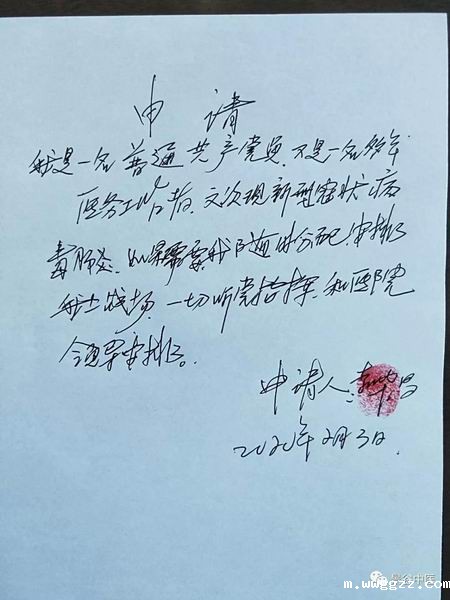 申请
我是一名普通共产党员、又是一名多年
医务工作者、这次现新型冠状病
毒肺炎、如果需要我随时分配、安排
我上战场、一切听党指挥、和医院
领导安排。
申请人:
2020年2月3日.
中医
m.wwggzz.com